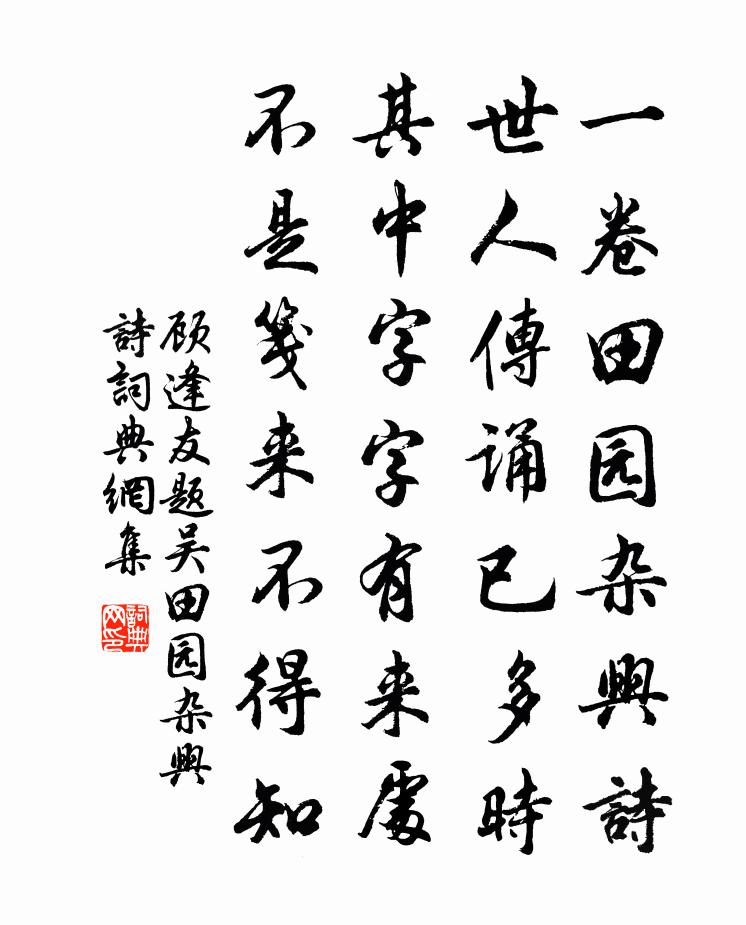 一卷田园杂興詩
世人傳诵已多時
其中字字有来處
不是笺来不得知
顾逢友题吴田园杂興
詩詞典網集
詞典网印